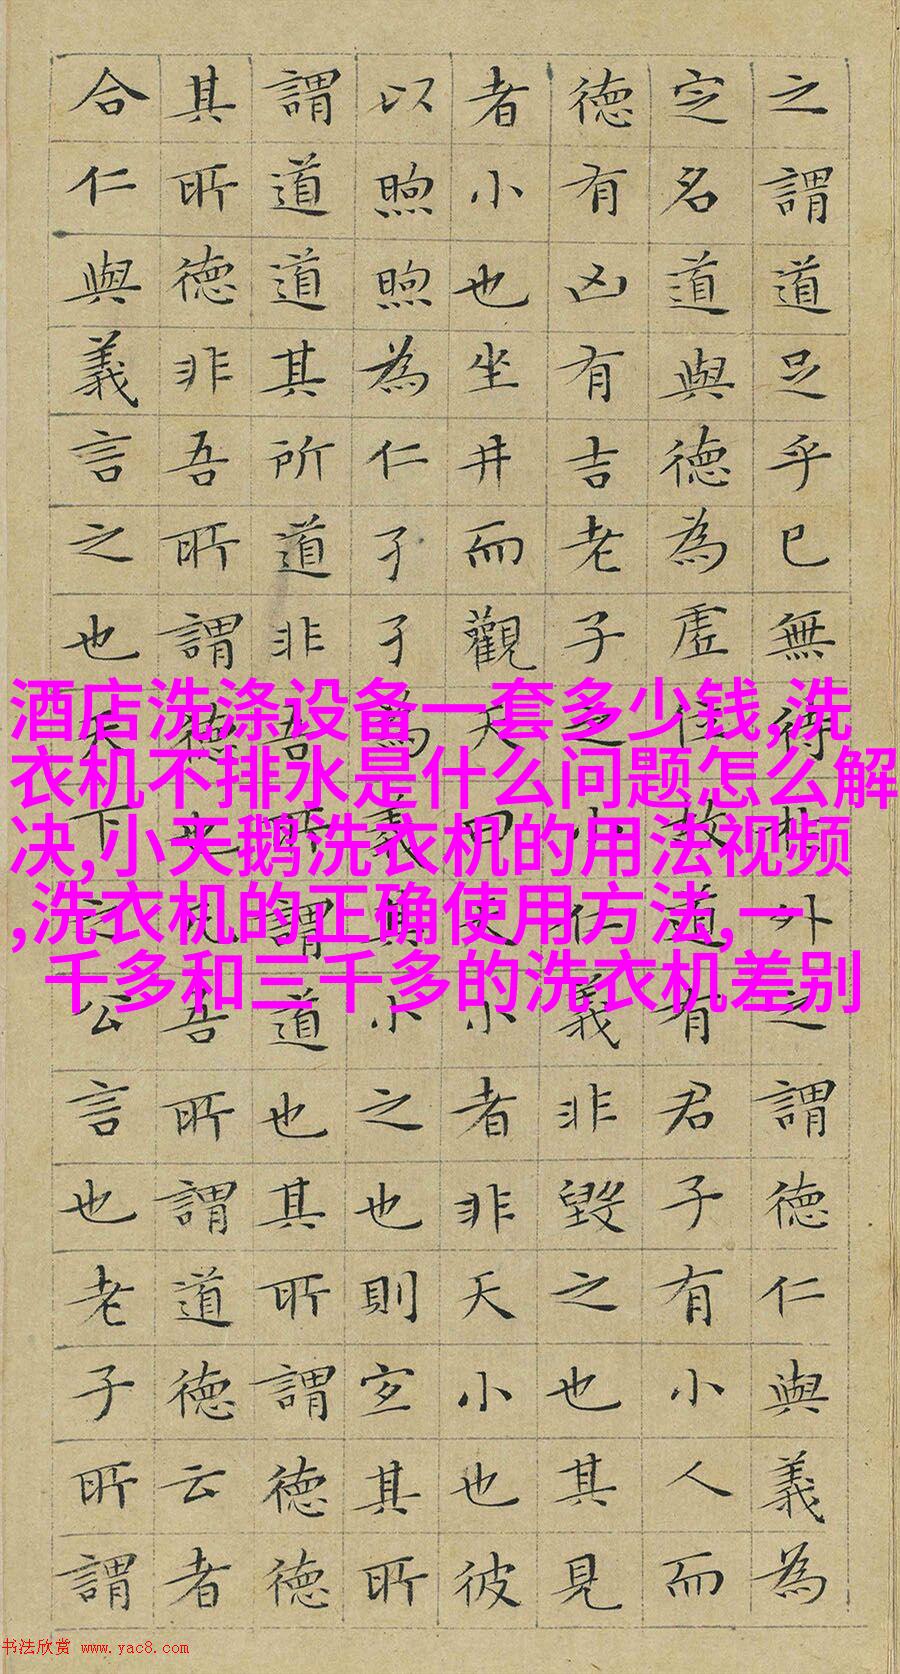 之謂道足乎已無待於外之謂德仁與義為
定名道與德為虛位故道有君子有小人而
德有凶有吉老子之小仁義非毀之也其見
者小也坐井而觀天曰天小者非天小也彼
以煦煦為仁孑孑為義其小之也則宜其所
謂道道其所道非吾所謂道也其所謂德德
其所德非吾所謂德也凡吾所謂道德云者
合仁與義言之也天下之公言也老子所謂
酒店洗涤设备一套多少钱,洗
衣机不排水是什么问题怎么解
决,小天鹅洗衣机的用法视频
,洗衣机的正确使用方法,一
千多和三千多的洗衣机差别
书法欣赏 www.yac8.com